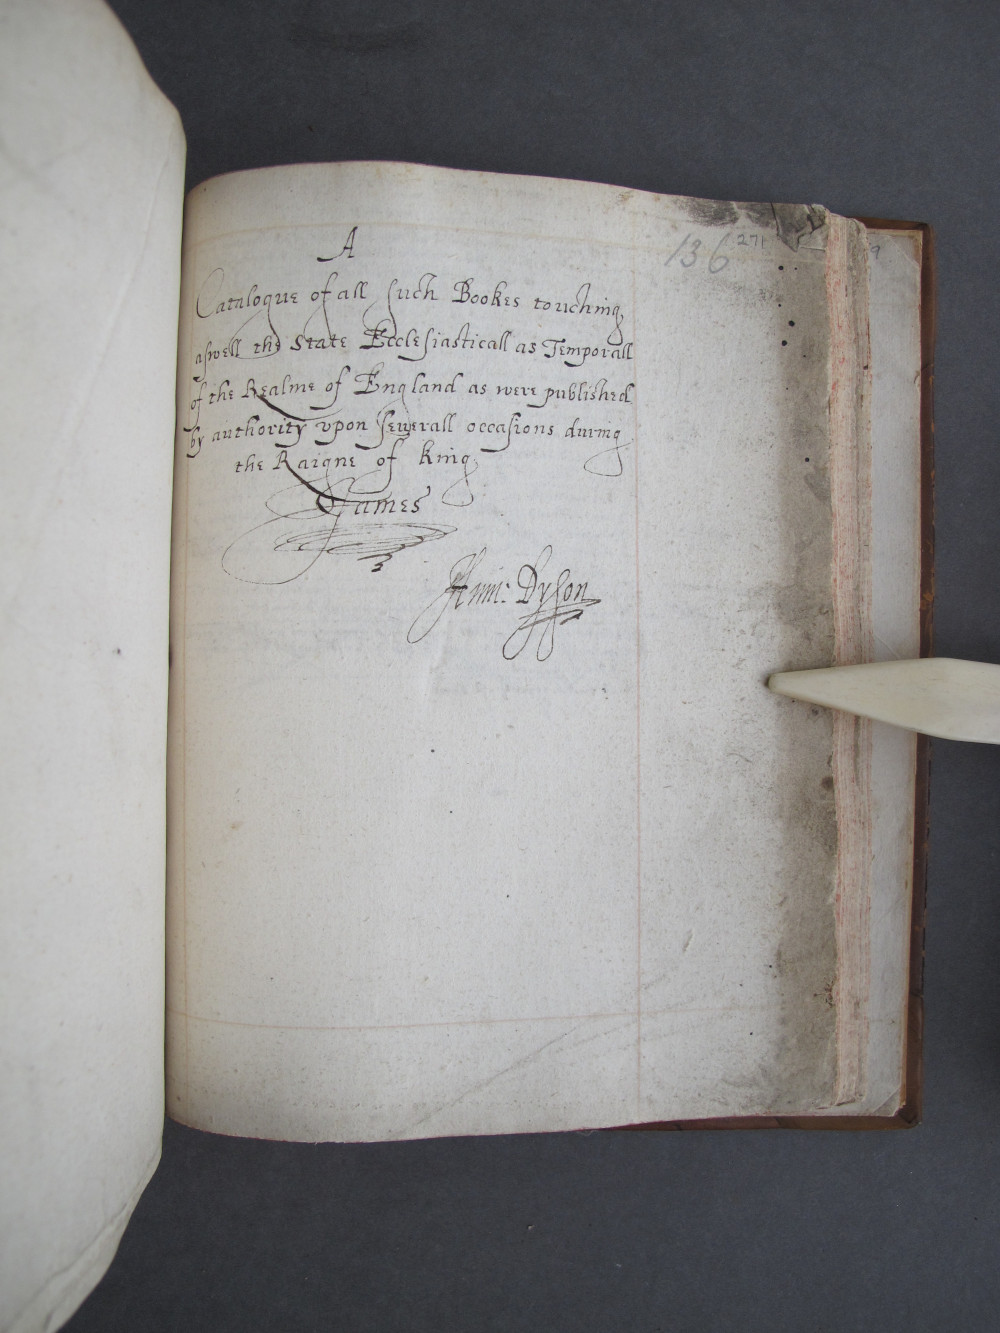 136 271
9
A
Catalogue of all such Bookes touching
aswell the State Ecclesiasticall as Temporall
of the Realme of England as were published
by authority vpon seuerall occasions during
the Raigne of King
James
Hum: Dyson